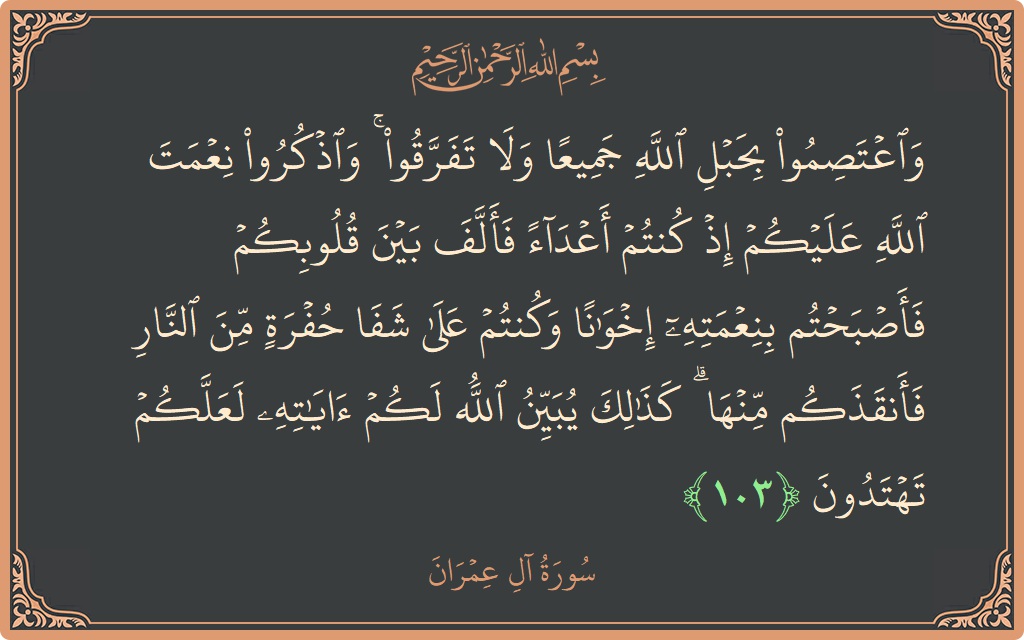 بِسْمِ اللهِ الرَّحْمٰنِ الرَّحِيْمِ
وَٱعۡتَصِمُوا۟ بِحَبۡلِ ٱللَّهِ جَمِيعًا وَلَا تَفَرَّقُوا۟ ۚ وَٱذۡكُرُوا۟ نِعۡمَتَ
ٱللَّهِ عَلَيۡكُمۡ إِذۡ كُنتُمۡ أَعۡدَآءً فَأَلَّفَ بَيۡنَ قُلُوبِكُمۡ
فَأَصۡبَحۡتُم بِنِعۡمَتِهِۦٓ إِخۡوَٰنًا وَكُنتُمۡ عَلَىٰ شَفَا حُفۡرَةٍ مِّنَ ٱلنَّارِ
فَأَنقَذَكُم مِّنۡهَا ۗ كَذَٰلِكَ يُبَيِّنُ ٱللَّهُ لَكُمۡ ءَايَـٰتِهِۦ لَعَلَّكُمۡ
تَهۡتَدُونَ ﴿١٠٣﴾
سُورَةُ آلِ عِمۡرَانَ